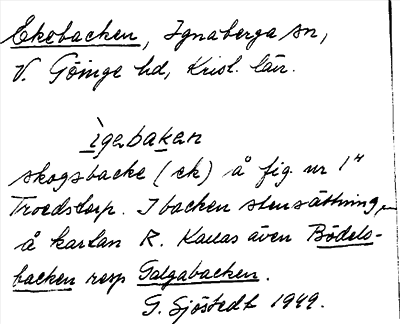 Ekebacken, Ignaberga sn,
V. Göinge hd, Krist. län.
ìgabakan
skogsbacke (ek) å fig. nr 1"
Troedstorp. I backen stensättning
å kartan R. Kallas även Bödels-
backen resp Galgabacken.
G. Sjöstedt 1949.